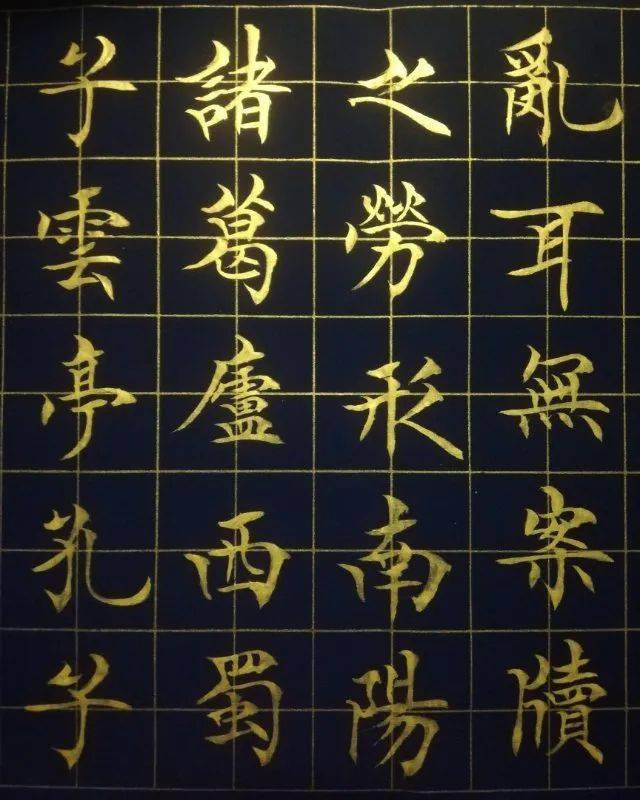 亂耳無案牘
之勞形南陽
諸葛廬西蜀
子雲亭孔子